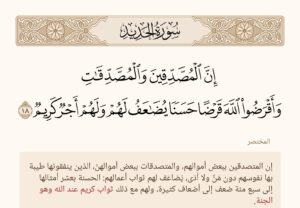 سُورَةُ الحَدِيدِ
إِنَّ ٱلۡمُصَّدِّقِينَ وَٱلۡمُصَّدِّقَٰتِ
وَأَقۡرَضُواْ ٱللَّهَ قَرۡضًا حَسَنٗا يُضَٰعَفُ لَهُمۡ وَلَهُمۡ أَجۡرٞ كَرِيمٞ ١٨
المختصر
إن المتصدقين ببعض أموالهم، والمتصدقات ببعض أموالهن، الذين ينفقونها طيبة
بها نفوسهم دون مَنّ ولا أذى، يُضاعف لهم ثواب أعمالهم: الحسنة بعشر أمثالها
إلى سبع مئة ضعف إلى أضعاف كثيرة، ولهم مع ذلك ثواب كريم عند الله وهو
الجنة.